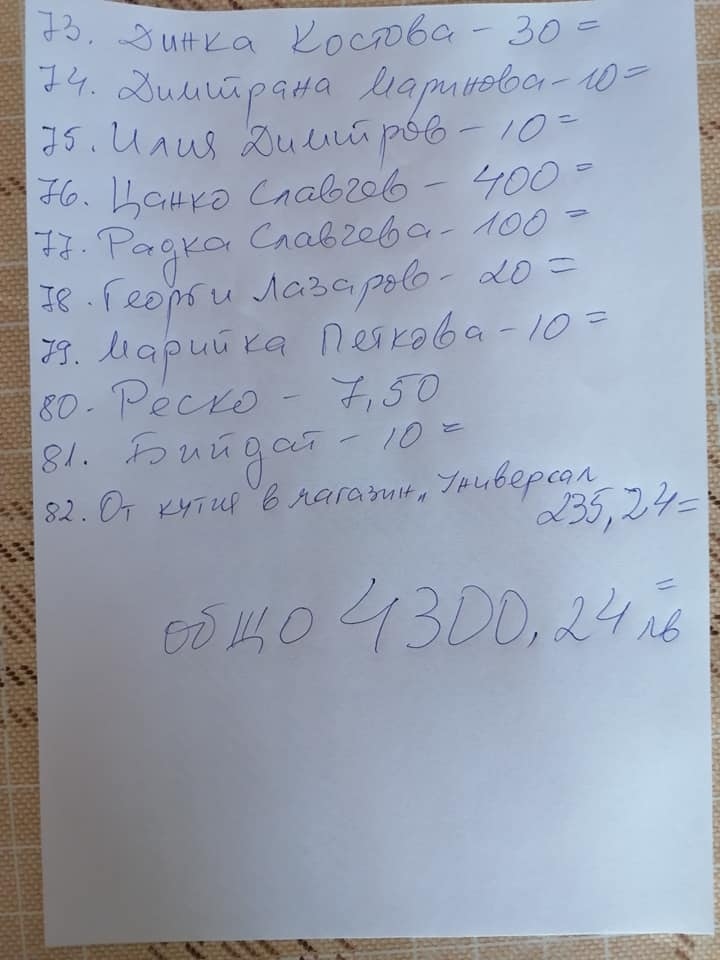 73. Динка Костова - 30 =
74. Димитрана Маринова - 10 =
75. Илия Димитров - 10 =
76. Цанко Славчев - 400 =
77. Радка Славчева - 100 =
78. Георги Лазаров - 20 =
79. Марийка Петкова - 10 =
80. Реско - 7,50
81. Бийдат - 10 =
82. От кутия в магазин „Универсал
235,24 =
общо 4300,24 = лв